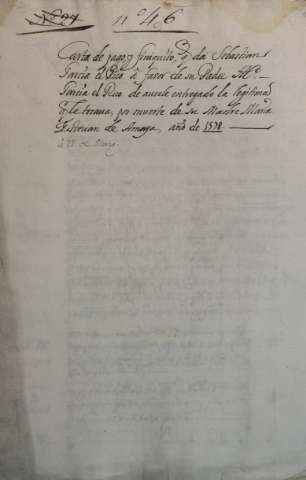 Nº 94
nº 46
Carta de pago, y finiquito, q̃ da Sebastian
Garcia el Rico à favor de su Padre Alº
Garcia el Rico de averle entregado la legitima
q̃ le tocava, por muerte de su Madre Maria
Estevan de Amaya, año de 1578
à 28 de Março